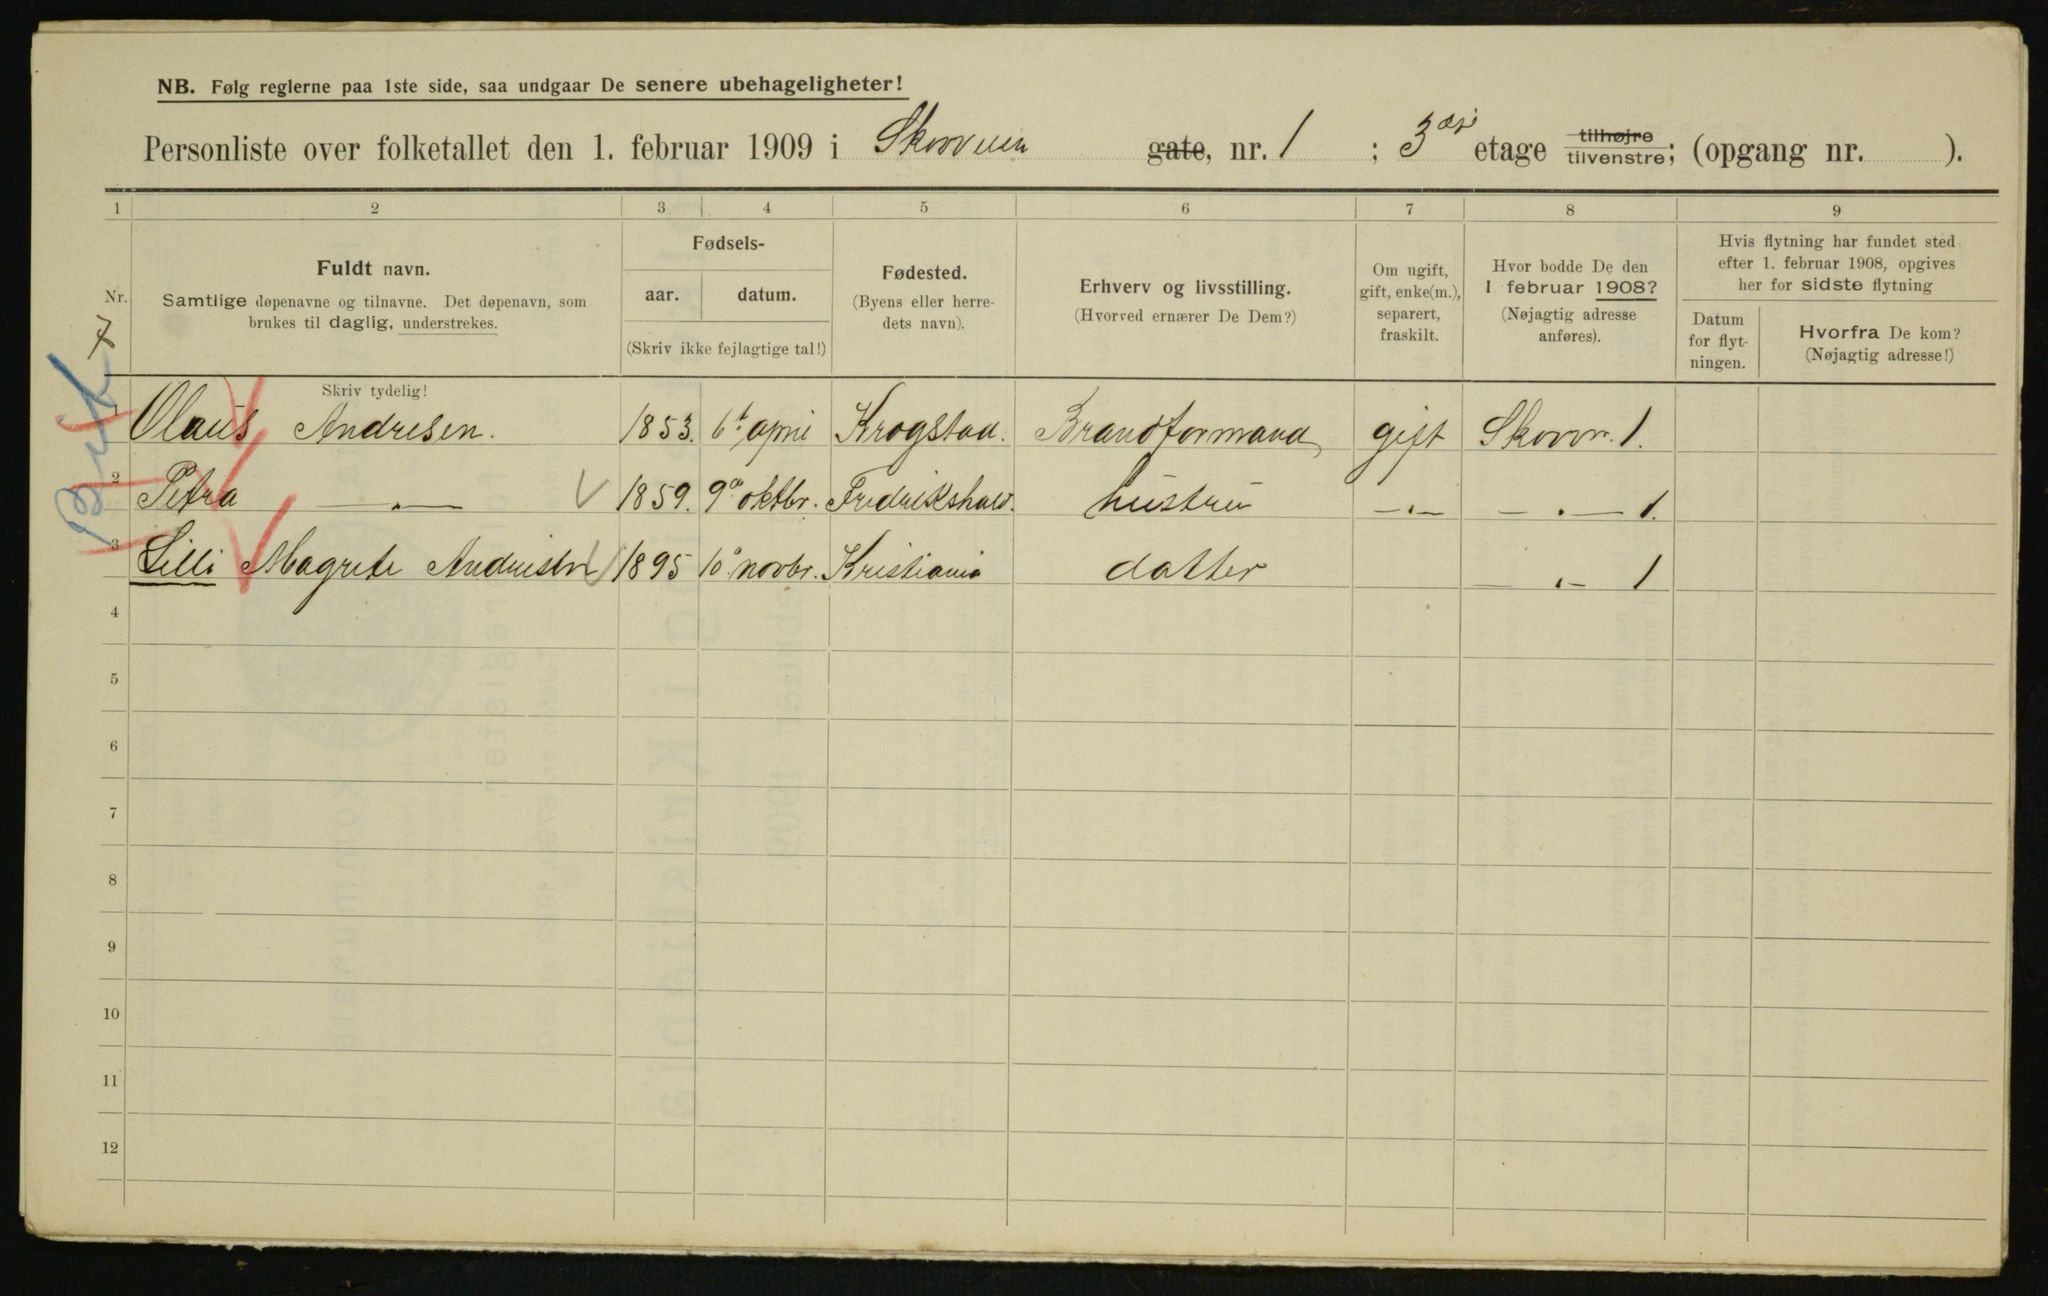 NB. Følg reglerne paa 1ste side, saa undgaar De senere ubehageligheter!
Personliste over folketallet den 1. februar 1909 i Skovveien gate, nr. 1 ; 3die etage tilhøjre tilvenstre; (opgang nr. ).
1 2 3 4 5 6 7 8 9
Nr.
Fuldt navn.
Samtlige døpenavne og tilnavne. Det døpenavn, som
brukes til daglig, understrekes.
Skriv tydelig!
Fødsels-
aar. datum.
(Skriv ikke fejlagtige tal!)
Fødested.
(Byens eller herre-
dets navn).
Erhverv og livsstilling.
(Hvorved ernærer De Dem?)
Om ugift,
gift, enke(m.),
separert,
fraskilt.
Hvor bodde De den
1 februar 1908?
(Nøjagtig adresse
anføres).
Hvis flytning har fundet sted
efter 1. februar 1908, opgives
her for sidste flytning
Datum
for flyt-
ningen.
Hvorfra De kom?
(Nøjagtig adresse!)
7
1 Olaus Andresen. 1853. 6t april Krogstad. Brandformand gift Skovv. 1.
2 Petra —„— 1859. 9de oktbr. Fredrikshald. hustru —„— —„— 1.
3 Lilli Magrete Andresen 1895 10 novbr. Kristiania datter —„— 1
4
5
6
7
8
9
10
11
12